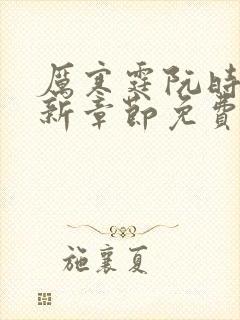 厲寒霆阮時
新章節免費
施襄夏